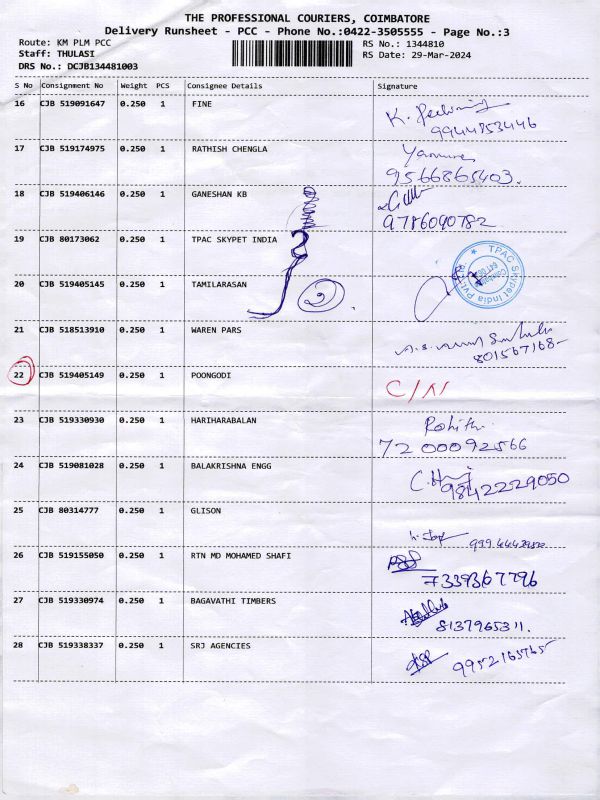 THE PROFESSIONAL COURIERS, COIMBATORE
Delivery Runsheet - PCC - Phone No.:0422-3505555 - Page No.:3
Route: KM PLM PCC RS No.: 1344810
Staff: THULASI RS Date: 29-Mar-2024
DRS No.: DCJB134481003
S No Consignment No Weight PCS Consignee Details Signature
16 CJB 519091647 0.250 1 FINE K.
9944853446
17 CJB 519174975 0.250 1 RATHISH CHENGLA
9566865403.
18 CJB 519406146 0.250 1 GANESHAN KB
9786090782
19 CJB 80173062 0.250 1 TPAC SKYPET INDIA
TPAC Skypet India Pvt
20 CJB 519405145 0.250 1 TAMILARASAN 2
21 CJB 518513910 0.250 1 WAREN PARS
801567168-
22 CJB 519405149 0.250 1 POONGODI
23 CJB 519330930 0.250 1 HARIHARABALAN Rohith
7200092566
24 CJB 519081028 0.250 1 BALAKRISHNA ENGG
9842229050
25 CJB 80314777 0.250 1 GLISON
26 CJB 519155050 0.250 1 RTN MD MOHAMED SHAFI
7339367796
27 CJB 519330974 0.250 1 BAGAVATHI TIMBERS
8137965311.
28 CJB 519338337 0.250 1 SRJ AGENCIES
9952165765